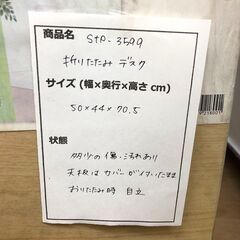 商品名
StP-3599
折りたたみ デスク
サイズ (幅×奥行×高さ cm)
50×44×70.5
状態
多少の傷・汚れあり
天板はカバーが付いたまま
おりたたみ時 自立